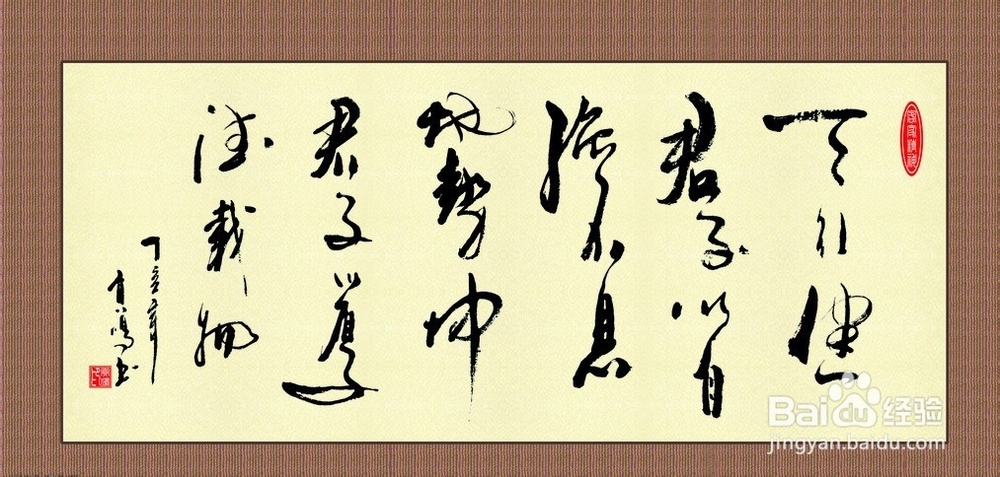 天行健
君子以自
强不息
地势坤
君子以厚
德载物
丁亥年
Baidu经验
jingyan.baidu.com